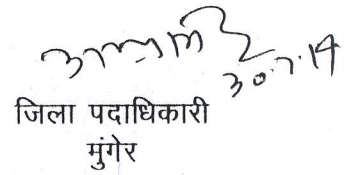 30.7.14
जिला पदाधिकारी
मुंगेर